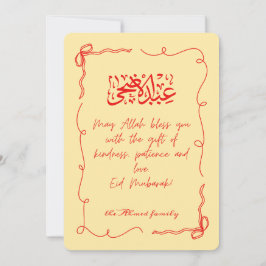 عيد الأضحى
May Allah bless you
with the gift of
kindness, patience and
love.
Eid Mubarak!
the Ahmed family